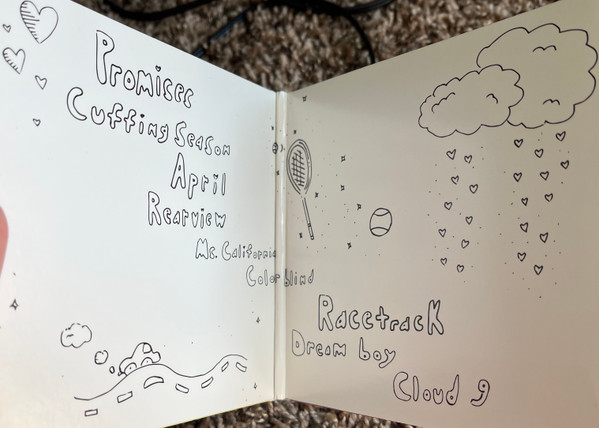 Promises
Cuffing Season
April
Rearview
Ms. California
Color blind
Racetrack
Dream boy
Cloud 9